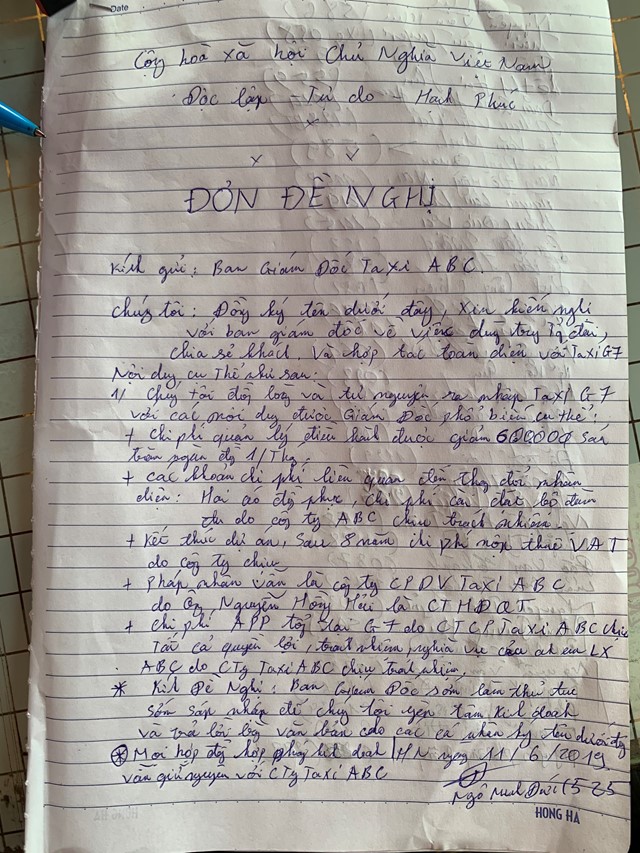 Date
Cộng hoà xã hội Chủ Nghĩa Việt Nam
Độc lập - Tự do - Hạnh Phúc
ĐƠN ĐỀ NGHỊ
Kính gửi: Ban Giám Đốc Taxi ABC.
Chúng tôi: Đồng ký tên dưới đây, Xin kiến nghị
với ban giám đốc về việc duy trỳ Tổng đài,
chia sẻ khách. Và hợp tác toàn diện với Taxi G7
Nội dung cụ Thể như sau:
1/ Chúng tôi đồng lòng và tự nguyện ra nhập TaXi G7
với các nội dung được Giám Đốc phổ biến cụ thể:
+ Chi phí quản lý điều hành được giảm 600000 sáu
trăm ngàn đồng 1/Tháng.
+ các khoản chi phí liên quan đến thay đổi nhân
diện: Hai áo đồng phục, chi phí cài đặt bộ đàm
do công ty ABC chịu trách nhiệm.
+ Kết thúc dự án, Sau 8 năm chi phí nộp thuế VAT
do công ty chịu
+ Pháp nhân vẫn là công ty CPDV TaXi ABC
do Ông Nguyễn Hồng Hải là CTHĐQT
+ Chi phí APP tổng đài G7 do CTCP Taxi ABC chịu
Tất cả quyền lợi, trách nhiệm nghĩa vụ của anh em LX
ABC do CTy Taxi ABC chịu trách nhiệm.
* Kính Đề Nghị: Ban Giám Đốc sớm làm thủ tục
sớm sáp nhập để chúng tôi yên tâm Kinh doanh
và trả lời bằng văn bản cho các cá nhân ký tên dưới đây
* Mọi hợp đồng hợp kinh doanh HN ngày 11/6/2019
vẫn giữ nguyên với CTy TaXi ABC
Ngô Minh Đức 1525
HONG HA